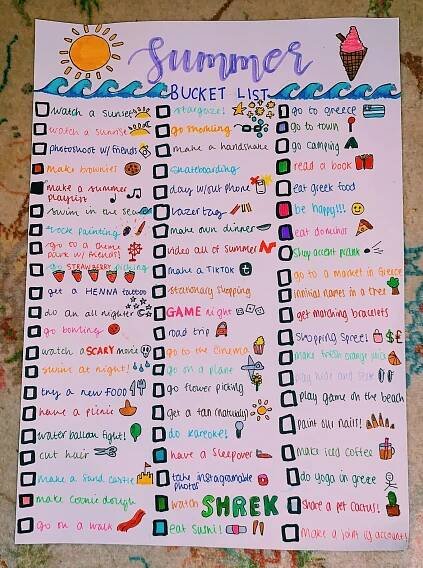 Summer
BUCKET LIST
watch a sunset
watch a sunrise
photoshoot w/friends
make brownies
make a summer
playlist
swim in the sea
rock painting
go to a theme
park w/ friends!
go STRAWBERRY picking
get a HENNA tattoo
do an all nighter
go bowling
watch a SCARY movie
swim at night!
try a new FOOD
have a picnic
water balloon fight!
cut hair
make a sand castle
make cookie dough
go on a walk
stargaze!
go snorkling
make a handshake
skateboarding
day w/out phone
lazer tag
make own dinner
video all of summer
make a TIKTOK
stationary shopping
GAME night
road trip
go to the cinema
go on a plane
go flower picking
get a tan (naturally)
do kareoke!
have a sleepover
take instagramable
photos
watch SHREK
eat sushi!
go to greece
go to town
go camping
read a book
eat greek food
be happy!!!
eat dominos
shop accent prank
go to a market in Greece
initial names in a tree
get matching bracelets
shopping spree! $ £
make fresh orange juice
play hide and seek
play game on the beach
paint our nails!
make iced coffee
do yoga in greece
share a pet cactus!
make a joint ig account!